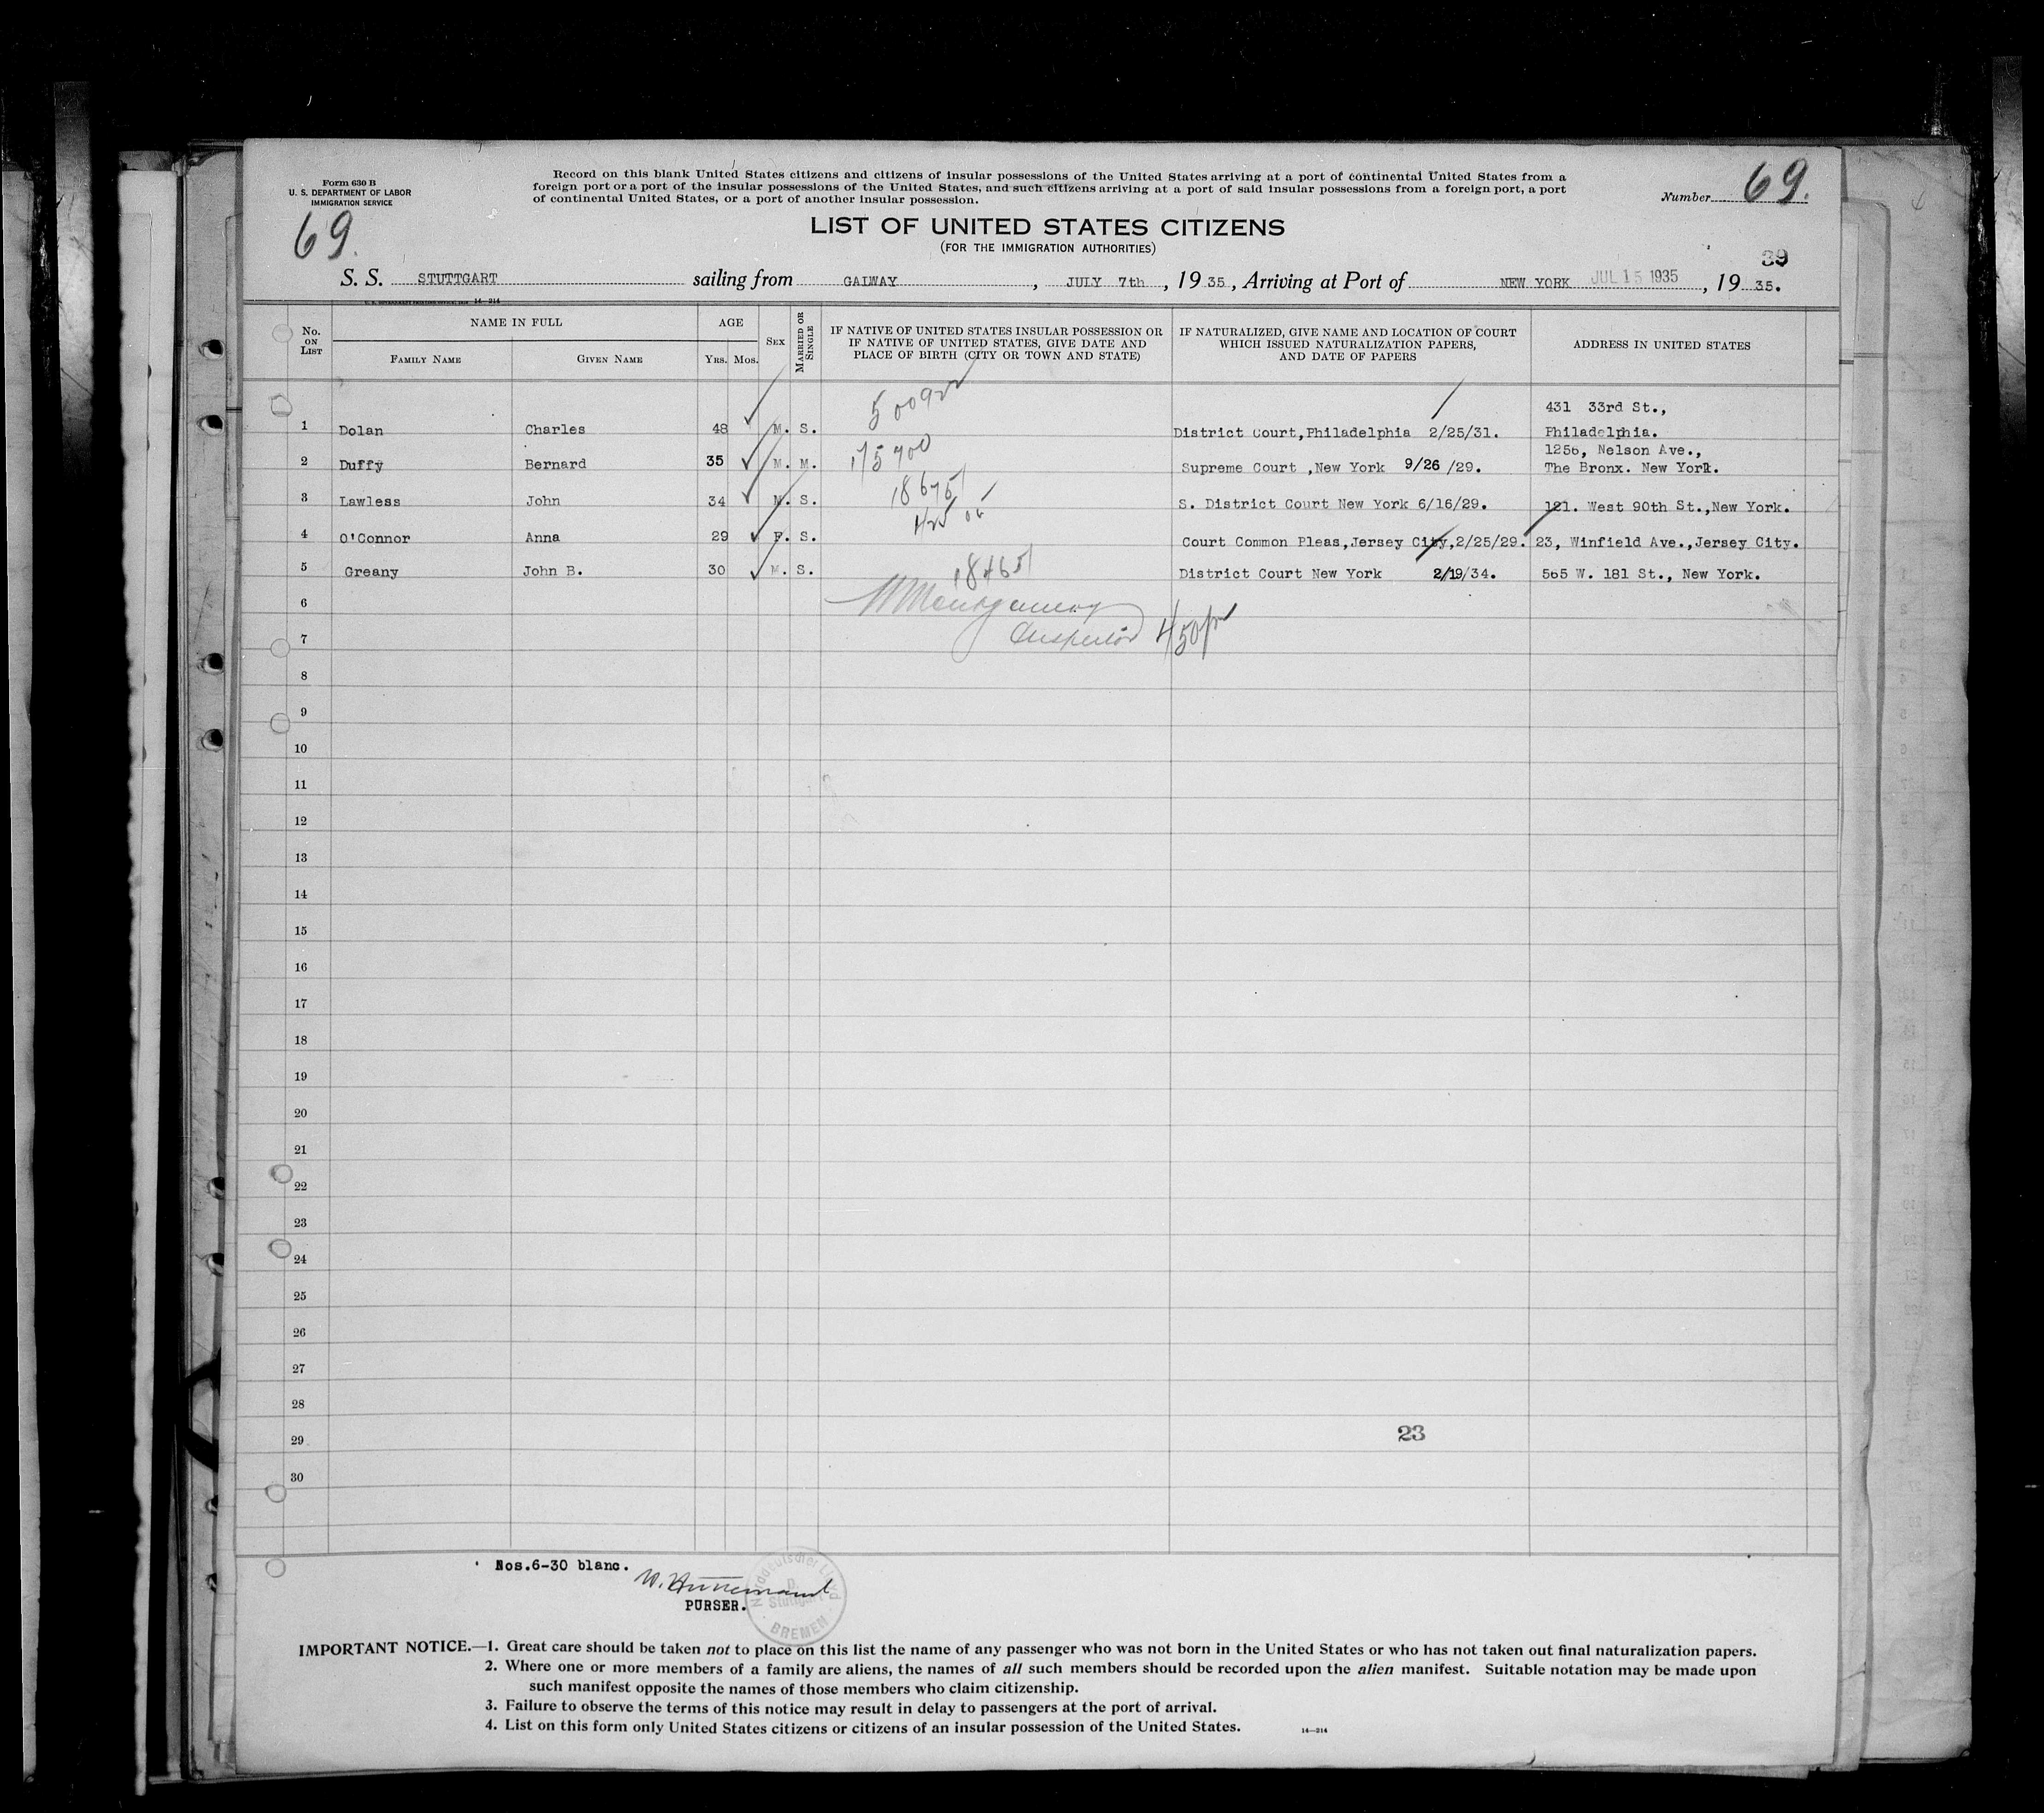 Form 630 B
U. S. DEPARTMENT OF LABOR
IMMIGRATION SERVICE
69.
Record on this blank United States citizens and citizens of insular possessions of the United States arriving at a port of continental United States from a
foreign port or a port of the insular possessions of the United States, and such citizens arriving at a port of said insular possessions from a foreign port, a port
of continental United States, or a port of another insular possession.
Number 69.
LIST OF UNITED STATES CITIZENS
(FOR THE IMMIGRATION AUTHORITIES)
39
S. S. STUTTGART sailing from GALWAY, JULY 7th, 1935, Arriving at Port of NEW YORK JUL 15 1935, 1935.
14—214
No. ON LIST
NAME IN FULL
FAMILY NAME
GIVEN NAME
AGE
YRS. MOS.
SEX
MARRIED OR SINGLE
IF NATIVE OF UNITED STATES INSULAR POSSESSION OR
IF NATIVE OF UNITED STATES, GIVE DATE AND
PLACE OF BIRTH (CITY OR TOWN AND STATE)
IF NATURALIZED, GIVE NAME AND LOCATION OF COURT
WHICH ISSUED NATURALIZATION PAPERS,
AND DATE OF PAPERS
ADDRESS IN UNITED STATES
431 33rd St.,
1 Dolan Charles 48 M. S. District Court,Philadelphia 2/25/31. Philadelphia.
1256, Nelson Ave.,
2 Duffy Bernard 35 M. M. 175900 Supreme Court ,New York 9/26 /29. The Bronx. New York.
3 Lawless John 34 M. S. S. District Court New York 6/16/29. 121. West 90th St.,New York.
4 O'Connor Anna 29 F. S. Court Common Pleas,Jersey City,2/25/29. 23, Winfield Ave.,Jersey City.
5 Greany John B. 30 M. S. District Court New York 2/19/34. 565 W. 181 St., New York.
6 Montgomery
7 Inspector 450pm
8
9
10
11
12
13
14
15
16
17
18
19
20
21
22
23
24
25
26
27
28
23
29
30
Nos.6-30 blanc.
PURSER.
Norddeutscher Lloyd
D. Stuttgart
BREMEN
IMPORTANT NOTICE.—1. Great care should be taken not to place on this list the name of any passenger who was not born in the United States or who has not taken out final naturalization papers.
2. Where one or more members of a family are aliens, the names of all such members should be recorded upon the alien manifest. Suitable notation may be made upon
such manifest opposite the names of those members who claim citizenship.
3. Failure to observe the terms of this notice may result in delay to passengers at the port of arrival.
4. List on this form only United States citizens or citizens of an insular possession of the United States.
14—214